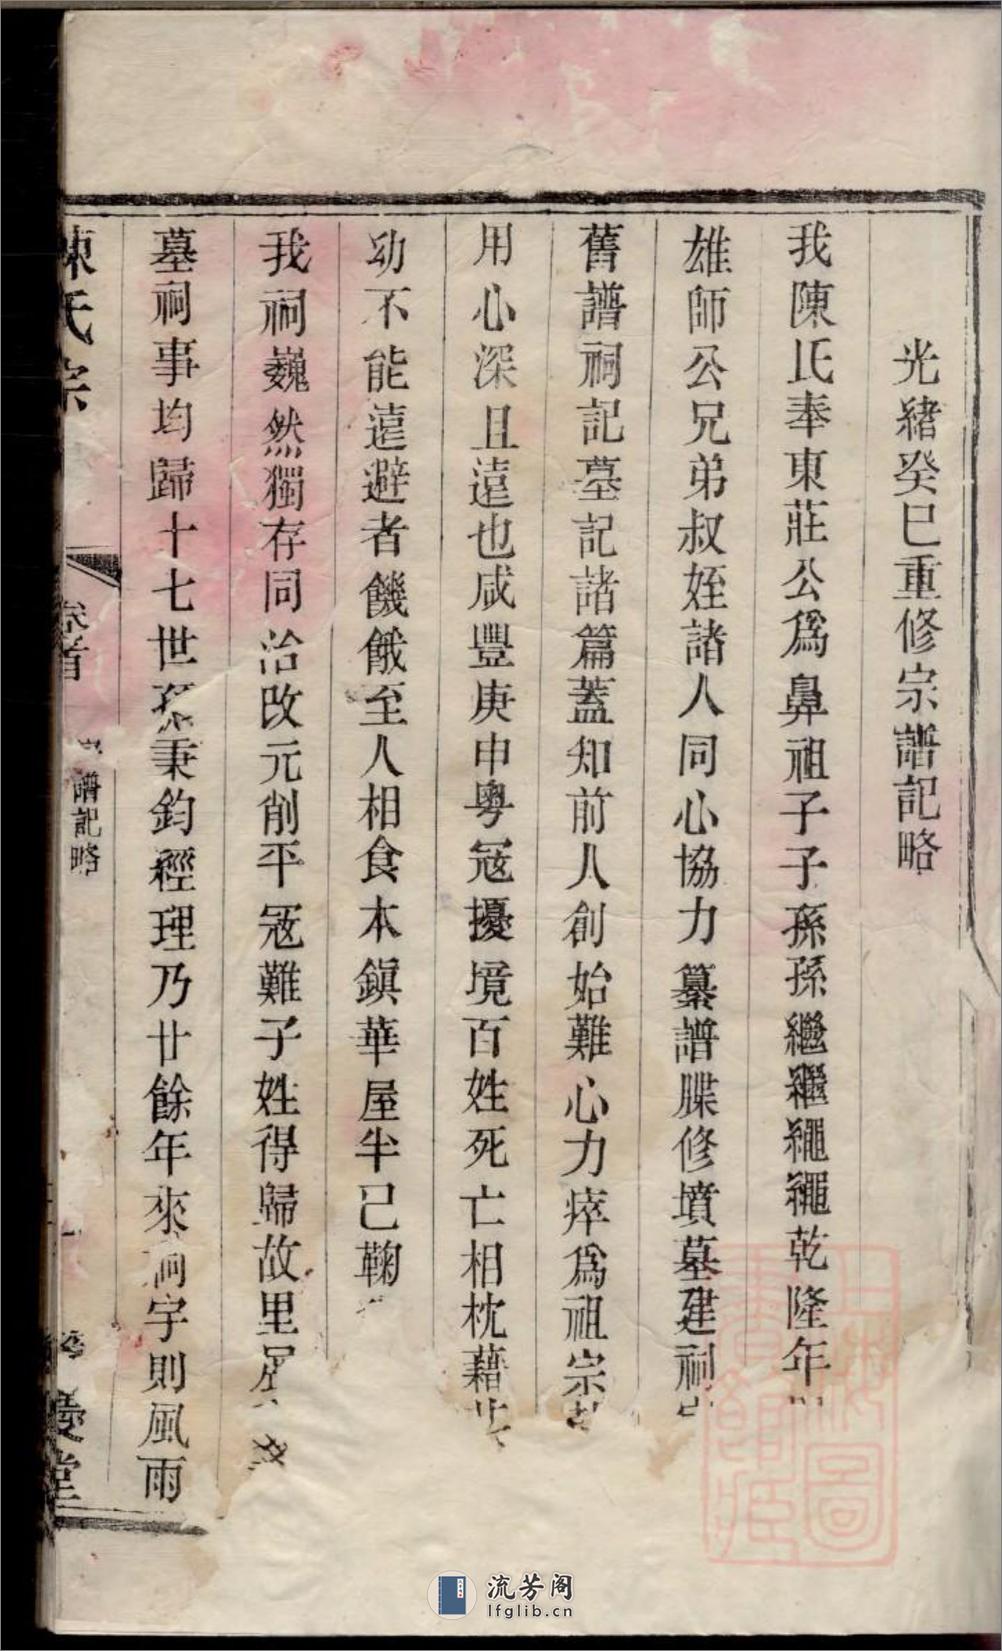 光緒癸巳重修宗譜記略
我陳氏奉東莊公爲鼻祖子子孫孫繼繼繩繩乾隆年
雄師公兄弟叔姪諸人同心協力纂譜牒修墳墓建祠
舊譜祠記墓記諸篇蓋知前人創始難心力瘁爲祖宗
用心深且遠也咸豐庚申粵冦擾境百姓死亡相枕藉
幼不能遠避者饑餓至人相食本鎭華屋半已鞠
我祠巍然獨存同治改元削平冦難子姓得歸故里
墓祠事均歸十七世孫秉鈞經理乃廿餘年來祠宇則風雨
陳氏宗
卷首
譜記略
慶堂
上海圖書館藏
流芳阁
lfglib.cn